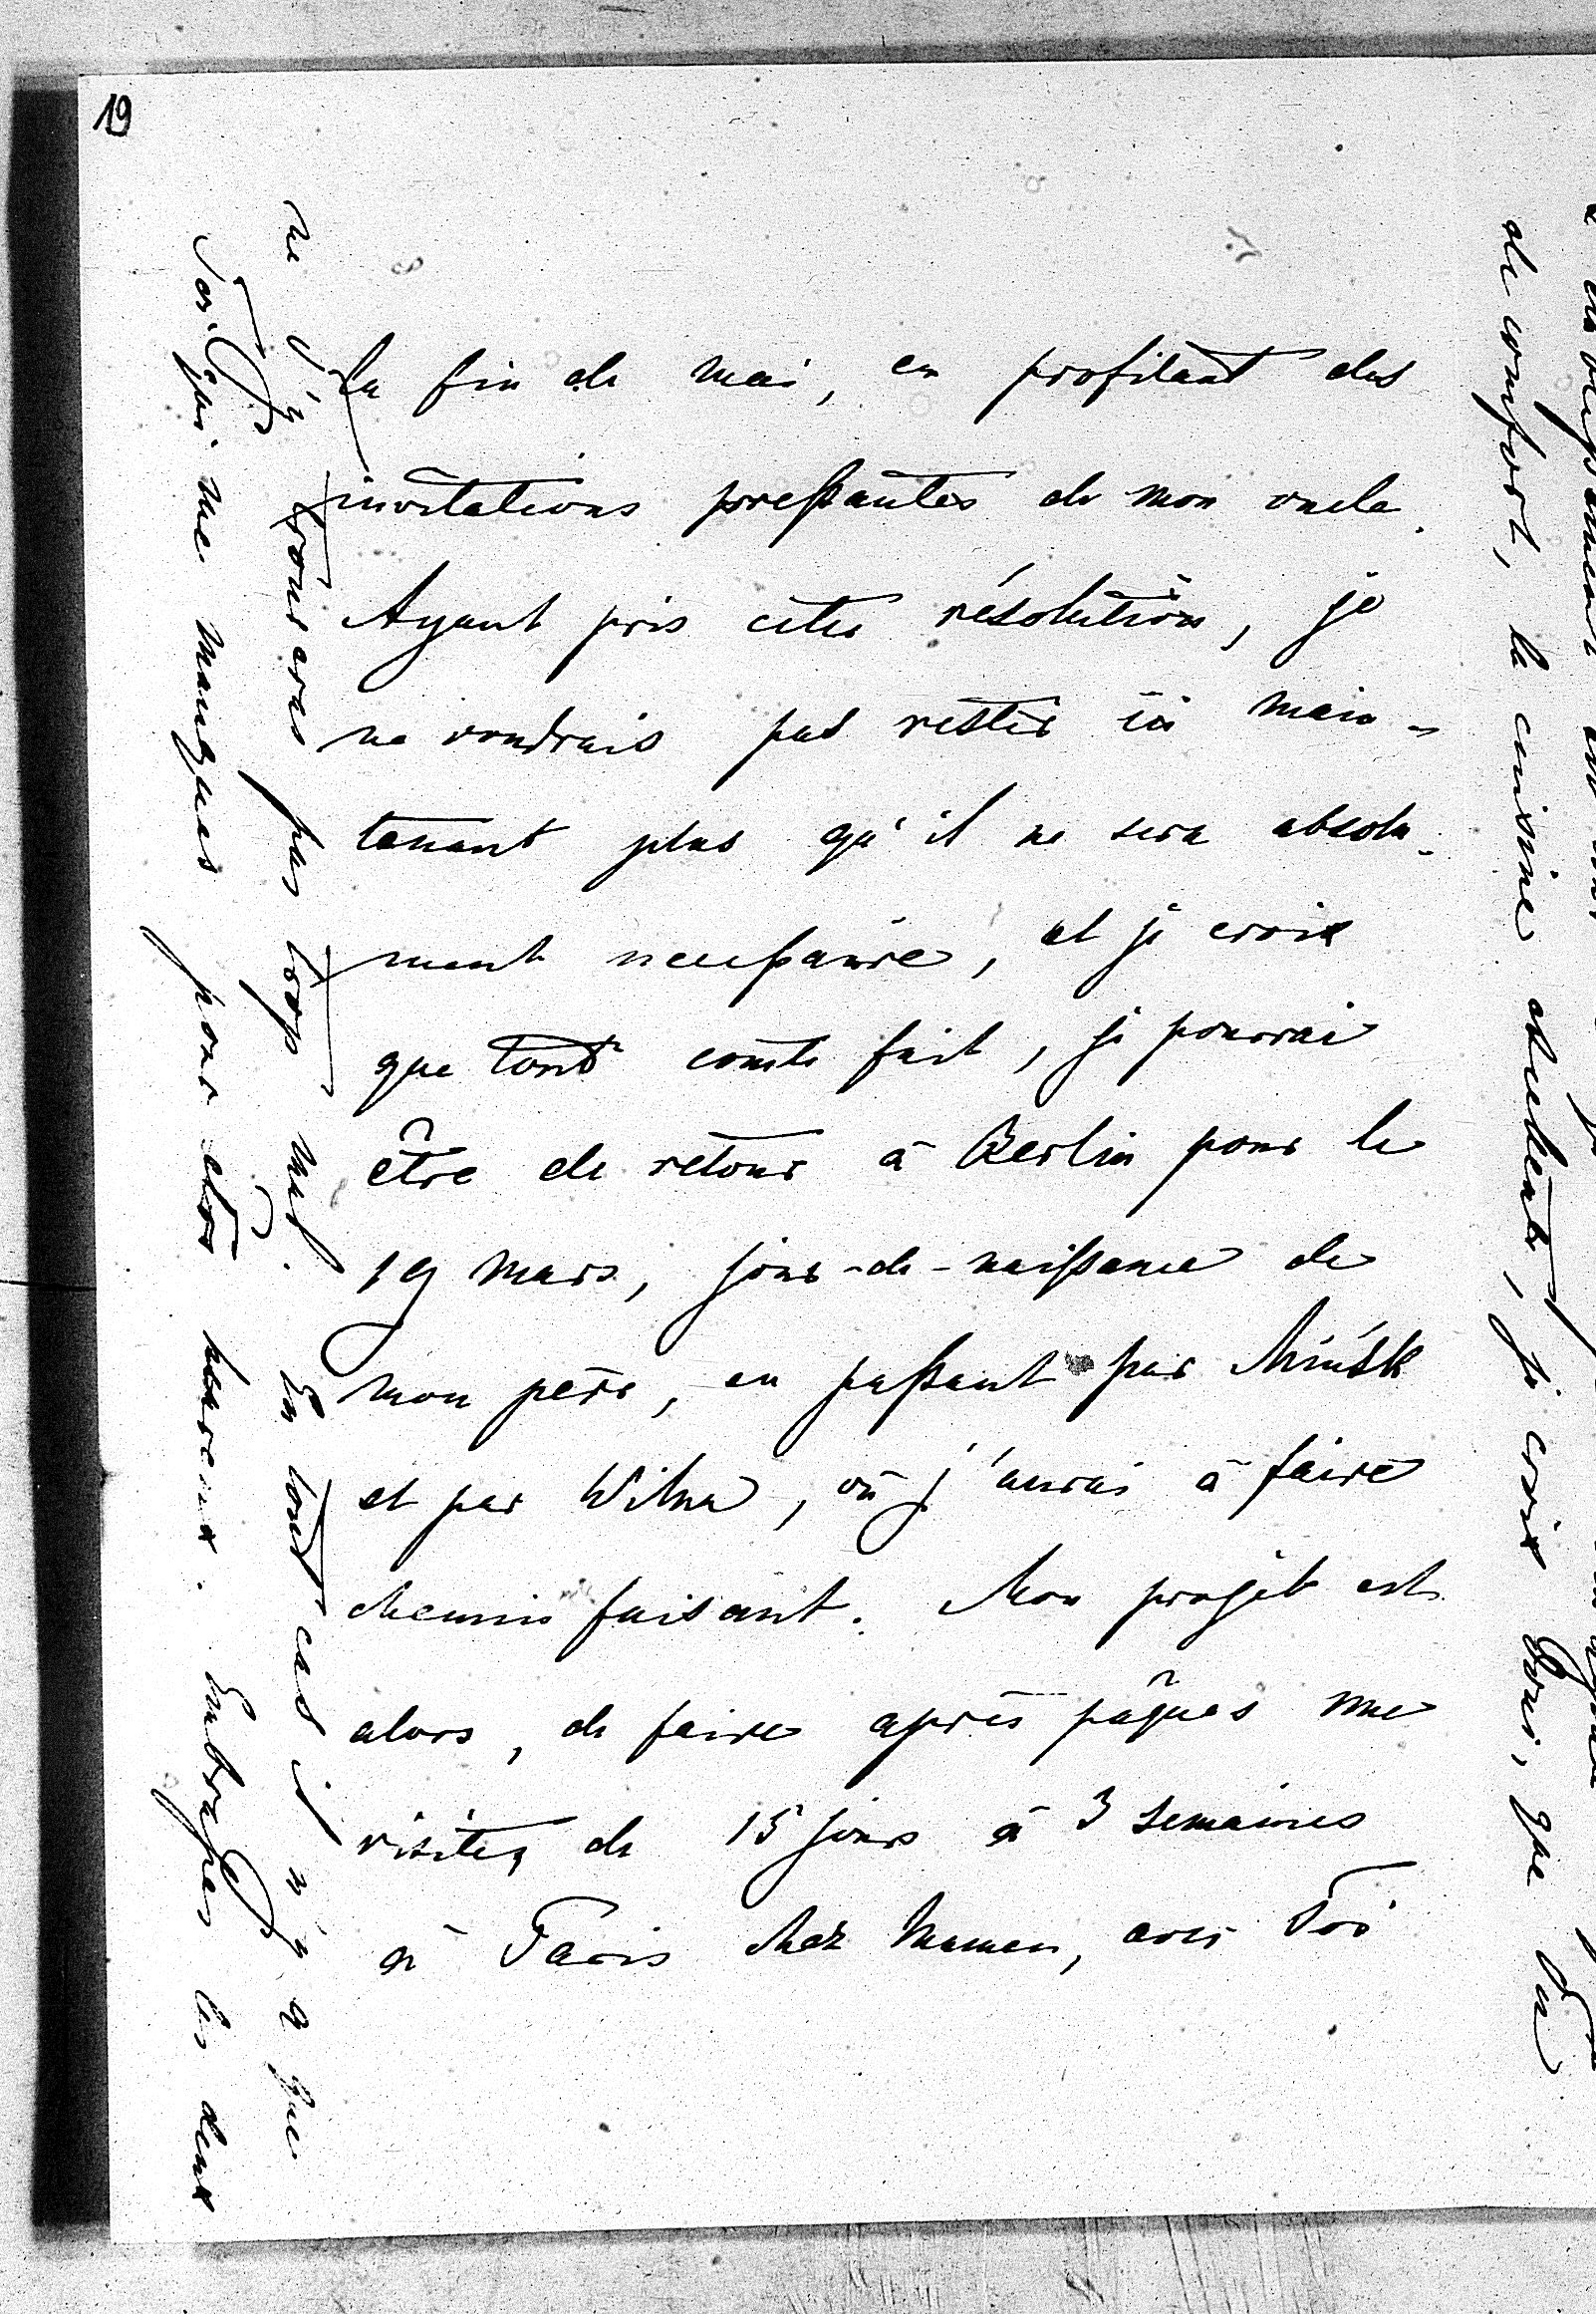 19
la fin de mai, en profitant des
invitations pressantes de mon oncle.
Ayant pris cette résolution, je
ne voudrais pas rester ici main-
tenant plus qu'il ne sera absolu-
ment necessaire, et je crois
que tout comte fait, je pourrai
être de retour à Berlin pour le
19 mars, jour-de-naissance de
mon père, en passant par Minsk
et par Wilna, où j'aurai à faire
chemin faisant. Mon projet est
alors, de faire après pâques une
visite, de 15 jours à 3 semaines
à Paris chez Maman, avec Toi
de confort, la cuisine excellente, je crois Toni, que Tu
ne t'y trouveras pas trop mal. En tout cas il n'y a que
Toi qui me manques pour être heureux. Embrasses les deux